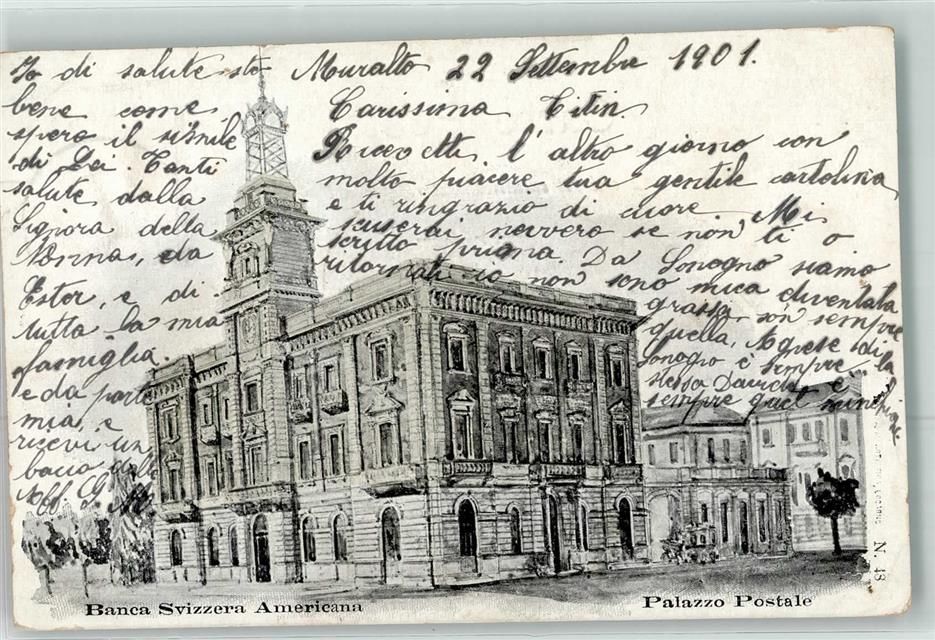 Muralto 22 Settembre 1901.
Carissima Titin.
Ricevetti l'altro giorno con
molto piacere tua gentile cartolina
e ti ringrazio di cuore. Mi
scuserai nevvero se non ti o
scritto prima. Da Sonogno siamo
ritornati io non sono mica diventata
grassa son sempre
quella, Agnese di
Sonogno è sempre la
stessa Davide è
sempre quel
Io di salute sto
bene come
spero il simile
di Lei. Tanti
salute dalla
Signora della
Nonna, da
Ester, e di
tutta la mia
famiglia.
e da parte
mia, e
ricevi un
bacio dalla
Aff.
Banca Svizzera Americana
Palazzo Postale
N. 43